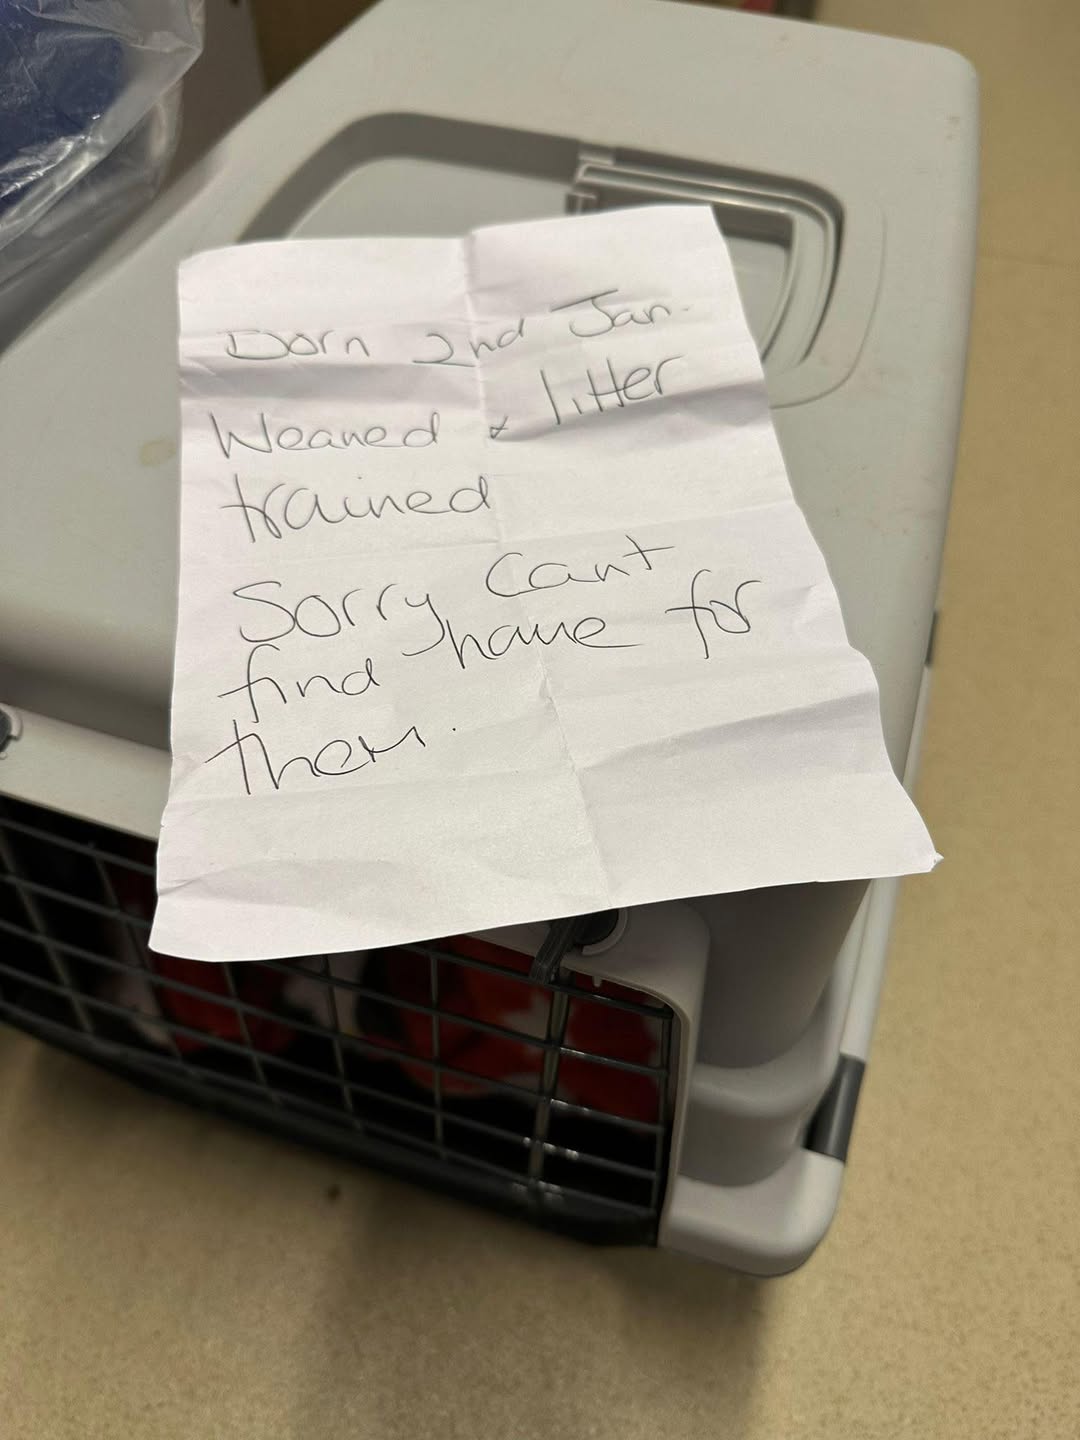 Born 2nd Jan.
Weaned & litter
trained
Sorry Cant
find home for
them.